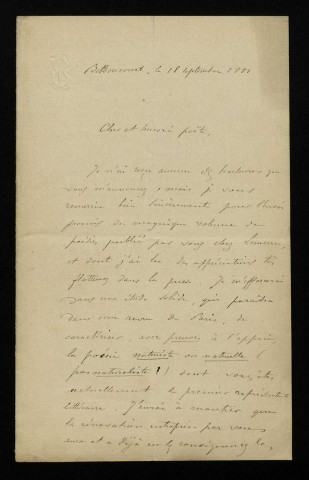 Bettoncourt, le 18 septembre 1881
Cher et honoré poète,
Je n'ai reçu aucune des brochures que
vous m'annoncez, mais je vous
remercie bien sincèrement pour l'envoi
promis du magnifique volume de
poésies publié par vous chez Lemerre,
et dont j'ai lu des appréciations très
flatteuses dans la presse. Je m'efforcerai
dans une étude solide, qui paraîtra
dans une revue de Paris, de
caractériser, avec preuves à l'appui,
la poésie naturiste ou naturelle (
pas naturaliste !) dont vous êtes
actuellement le premier représentant
littéraire. J'arrive à montrer que
la rénovation entreprise par vous